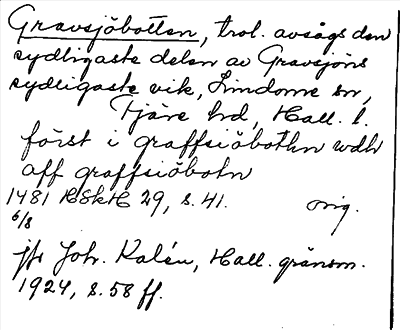 Gravsjöbotten, trol. avsågs den
sydligaste delen av Gravsjöns
sydligaste vik, Lindome sn,
Fjäre hd, Hall. l.
först i graffsiöbothn wdh
aff graffsiöbotn
1481 HSkH 29, s. 41. orig.
6/8
jfr Joh. Kalén, Hall. gränsm.
1924, s. 58 ff.